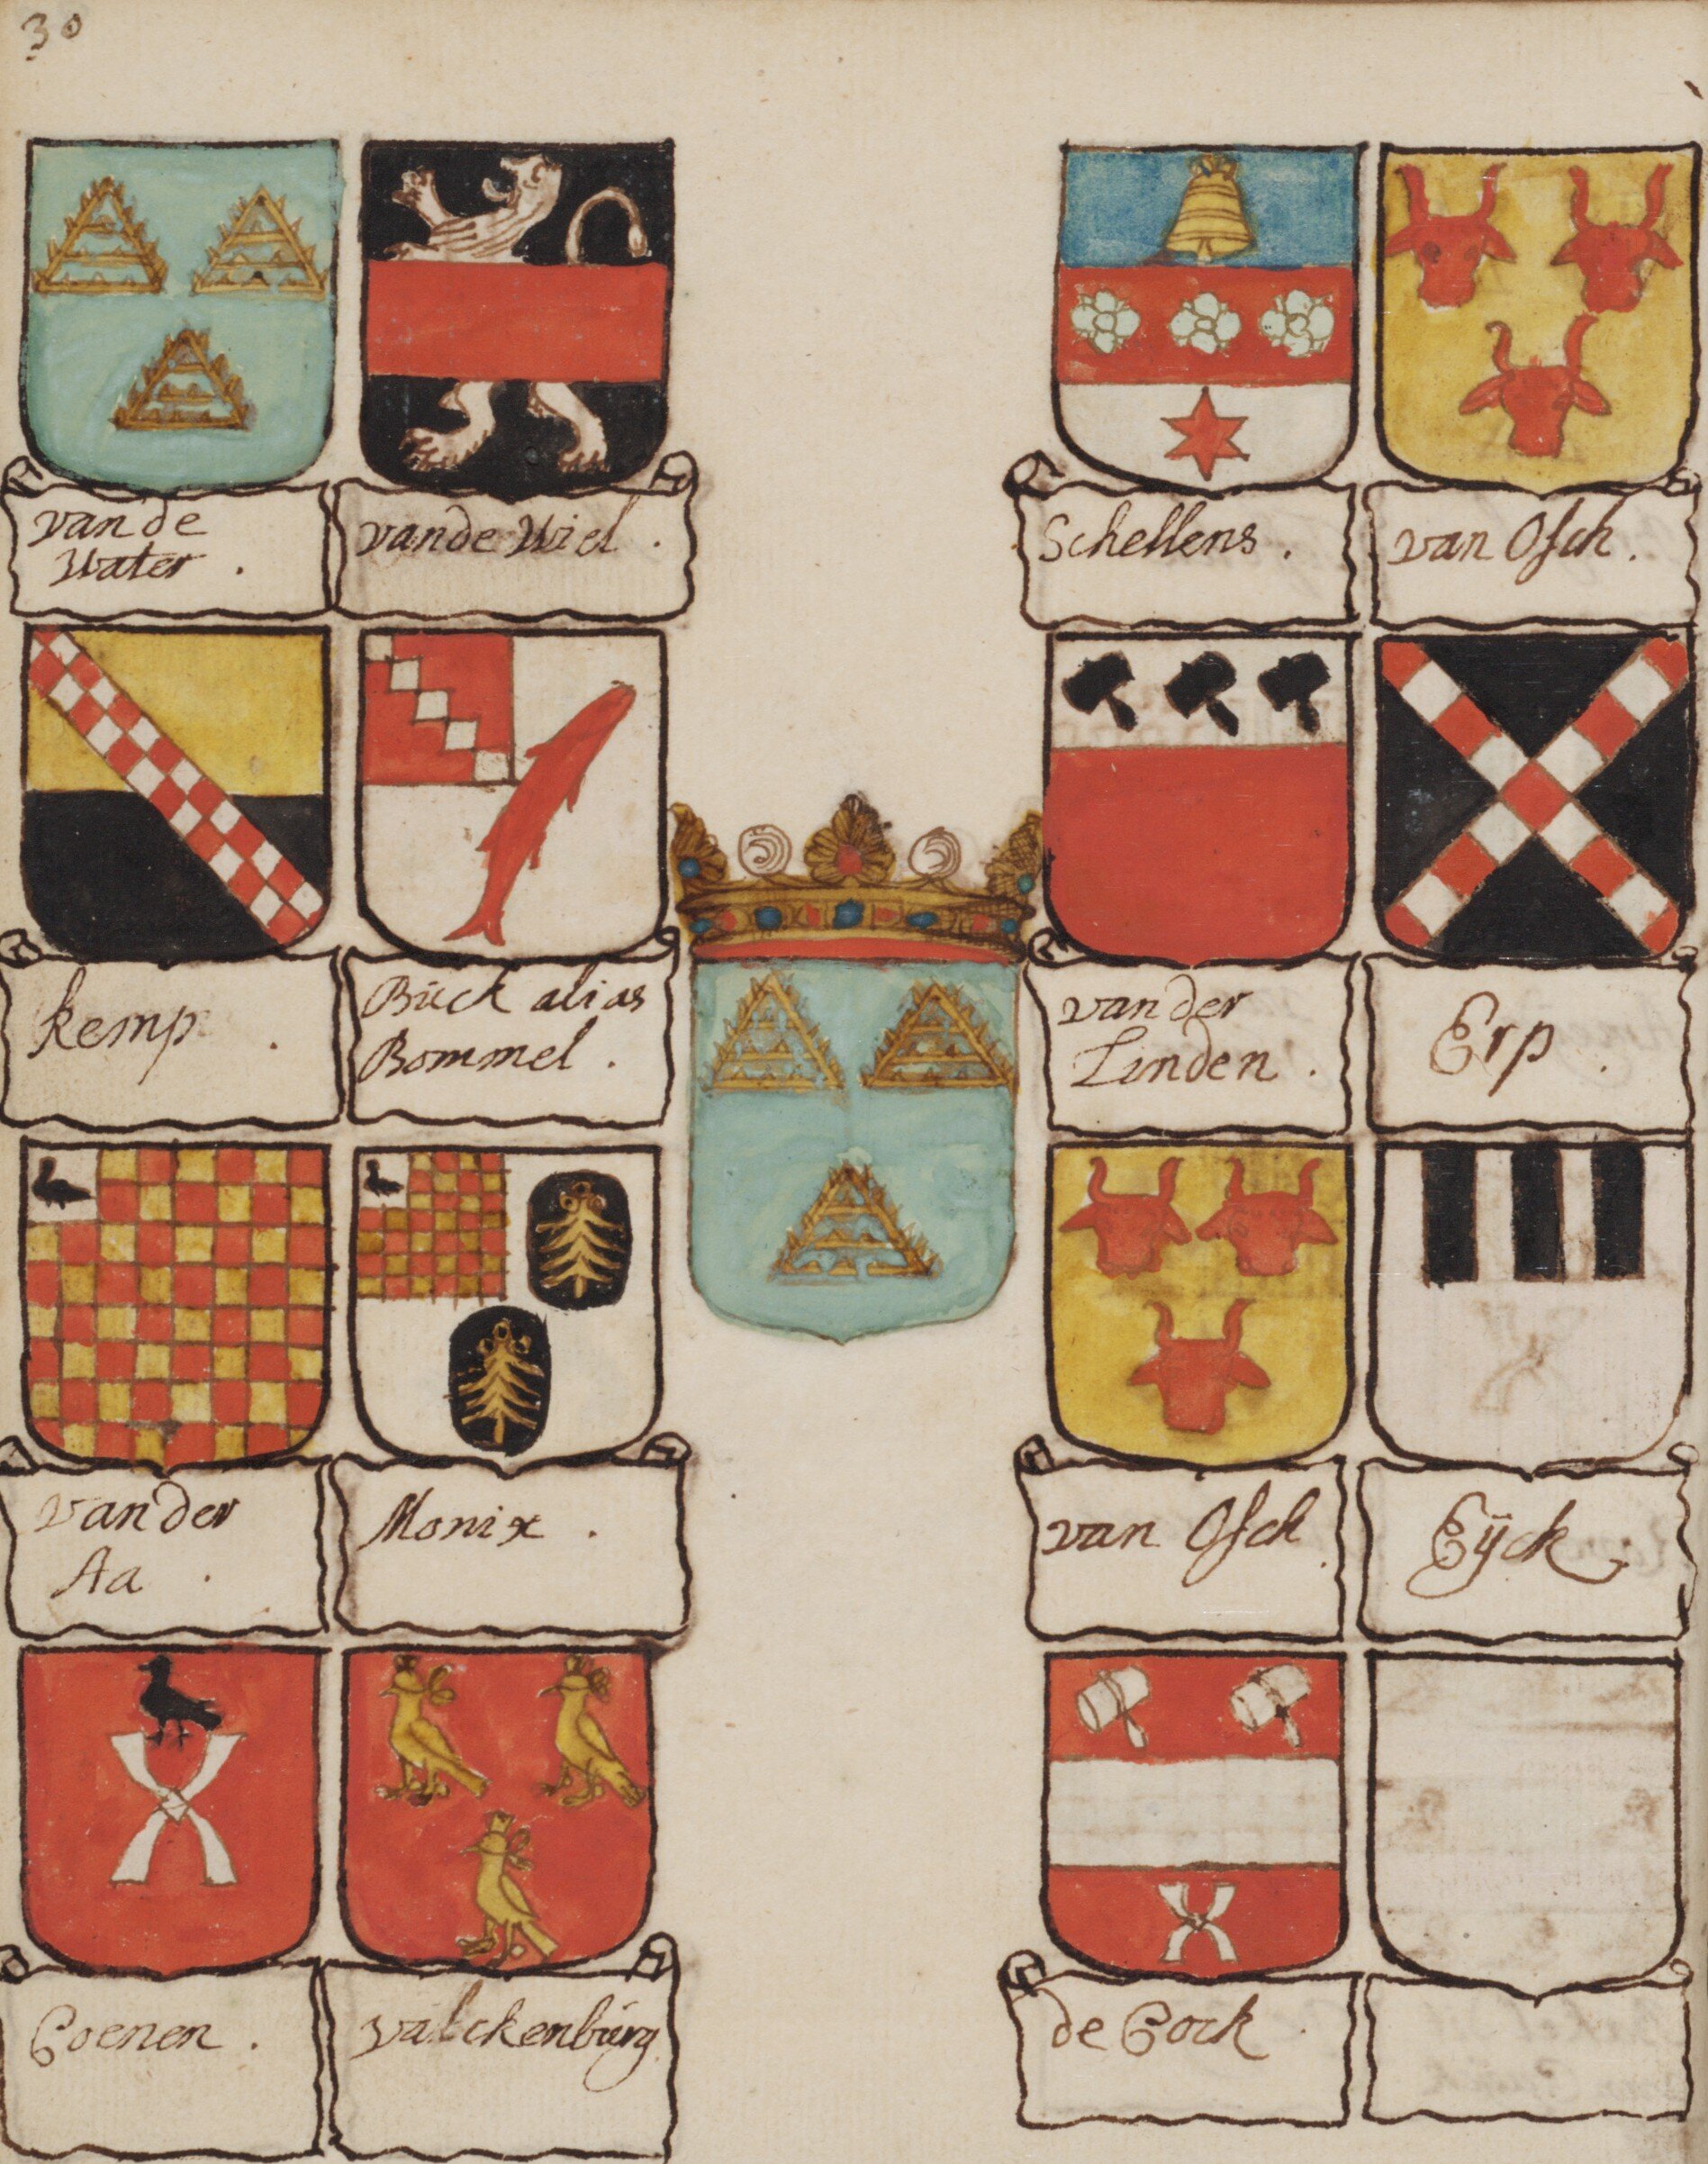 30
van de
Water .
vande Wiel .
Schellens .
van Osch .
kemp .
Bück alias
Bommel .
van der
Linden .
Erp .
van der
Aa .
Monix .
van Osch .
Eijck .
Coenen .
valckenbúrg
de Cock .